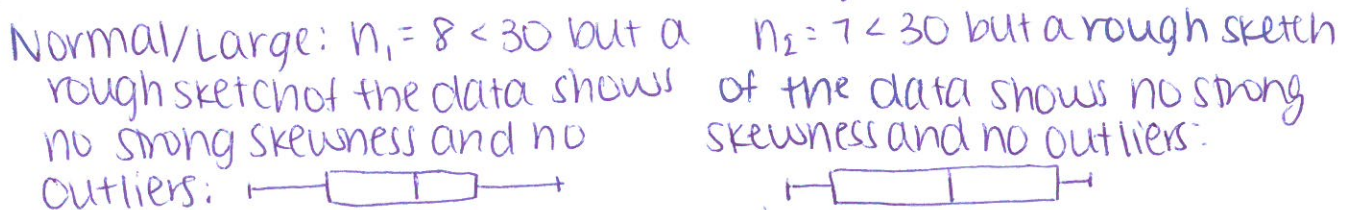 Normal/Large: n₁ = 8 < 30 but a
rough sketch of the data shows
no strong skewness and no
outliers:
n₂ = 7 < 30 but a rough sketch
of the data shows no strong
skewness and no outliers: